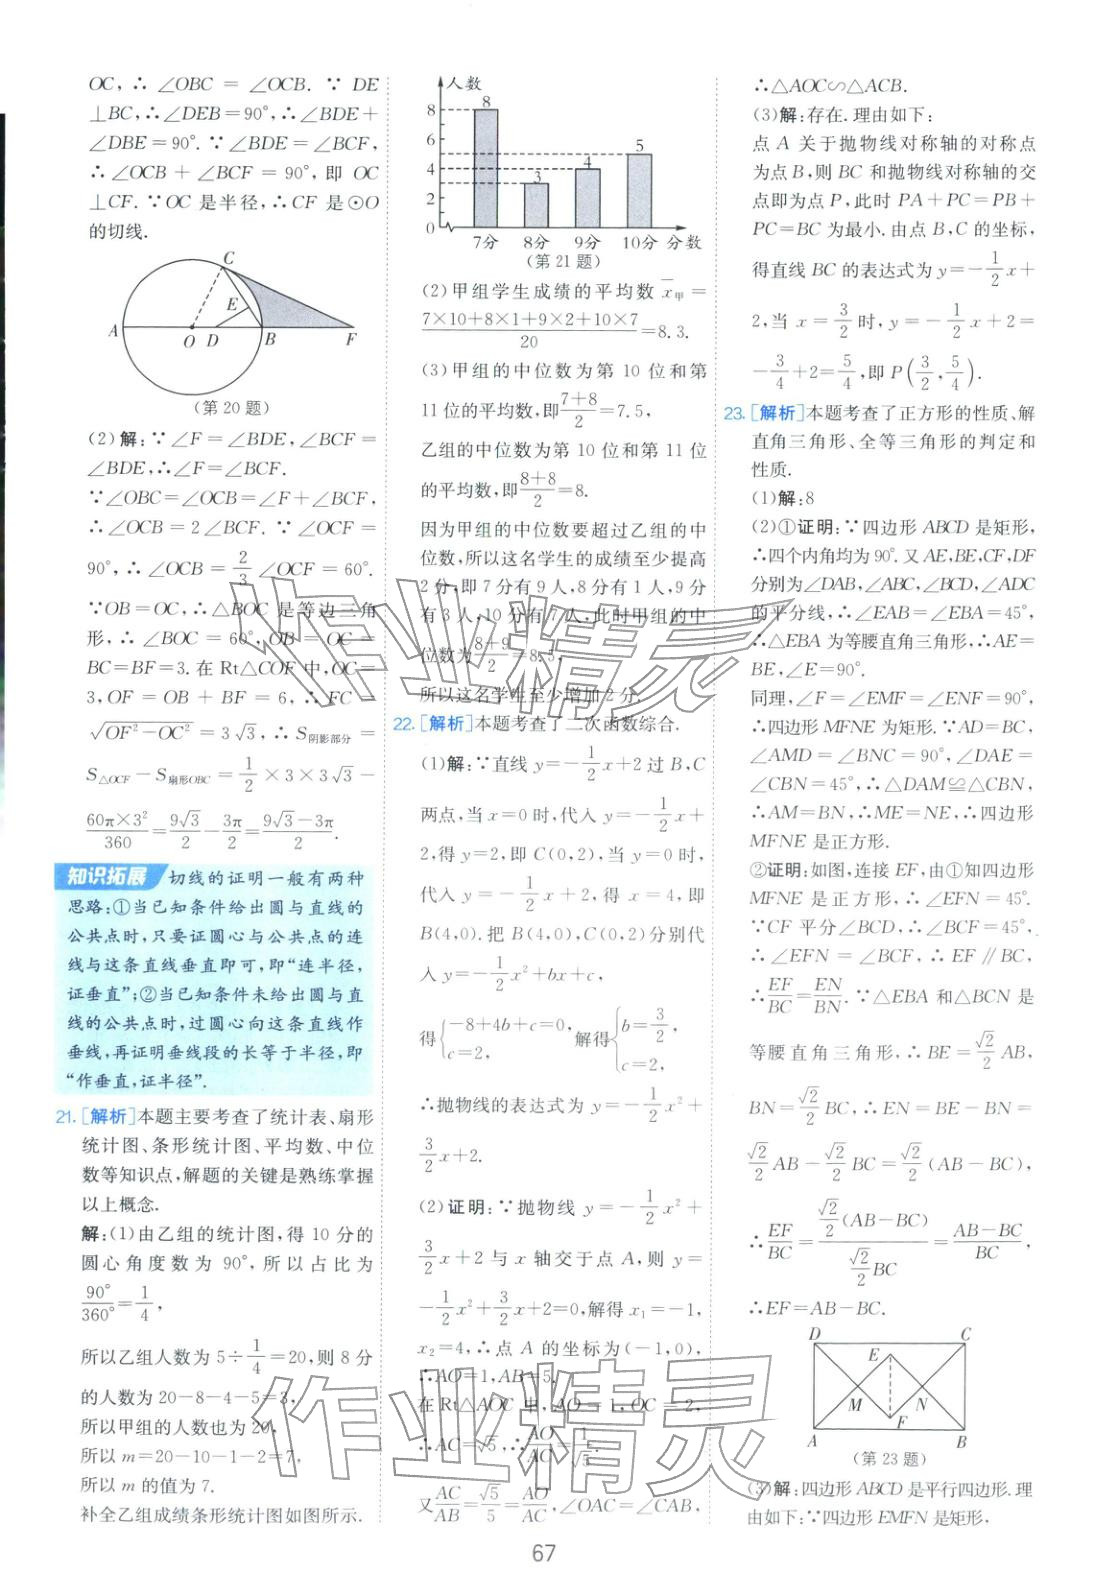 OC,∴∠OBC=∠OCB.∵DE
⊥BC,∴∠DEB=90°,∴∠BDE+
∠DBE=90°.∵∠BDE=∠BCF,
∴∠OCB+∠BCF=90°,即 OC
⊥CF.∵OC 是半径,∴CF 是⊙O
的切线.
C
E
A
O D B F
(第 20 题)
(2)解:∵∠F=∠BDE,∠BCF=
∠BDE,∴∠F=∠BCF.
∵∠OBC=∠OCB=∠F+∠BCF,
∴∠OCB=2∠BCF.∵∠OCF=
90°,∴∠OCB=2/3∠OCF=60°.
∵OB=OC,∴△BOC 是等边三角
形,∴∠BOC=60°,OB=OC=
BC=BF=3.在 Rt△COF 中,OC=
3,OF=OB+BF=6,∴FC
√(OF²-OC²)=3√3,∴S阴影部分=
S△OCF-S扇形OBC=1/2×3×3√3-
60π×3²/360=9√3/2-3π/2=(9√3-3π)/2.
知识拓展 切线的证明一般有两种
思路:①当已知条件给出圆与直线的
公共点时,只要证圆心与公共点的连
线与这条直线垂直即可,即“连半径,
证垂直”;②当已知条件未给出圆与直
线的公共点时,过圆心向这条直线作
垂线,再证明垂线段的长等于半径,即
“作垂直,证半径”.
21.[解析]本题主要考查了统计表、扇形
统计图、条形统计图、平均数、中位
数等知识点,解题的关键是熟练掌握
以上概念.
解:(1)由乙组的统计图,得 10 分的
圆心角度数为 90°,所以占比为
90°/360°=1/4,
所以乙组人数为 5÷1/4=20,则 8 分
的人数为 20-8-4-5=3,
所以甲组的人数也为 20,
所以 m=20-10-1-2=7,
所以 m 的值为 7.
补全乙组成绩条形统计图如图所示.
人数
8
6
4
2
0
8
3
4
5
7分 8分 9分 10分 分数
(第 21 题)
(2)甲组学生成绩的平均数 x̄甲=
(7×10+8×1+9×2+10×7)/20=8.3.
(3)甲组的中位数为第 10 位和第
11 位的平均数,即(7+8)/2=7.5,
乙组的中位数为第 10 位和第 11 位
的平均数,即(8+8)/2=8.
因为甲组的中位数要超过乙组的中
位数,所以这名学生的成绩至少提高
2 分,即 7 分有 9 人,8 分有 1 人,9 分
有 3 人,10 分有 7 人,此时甲组的中
位数为(8+9)/2=8.5,
所以这名学生至少增加 2 分.
22.[解析]本题考查了二次函数综合.
(1)解:∵直线 y=-1/2x+2 过 B,C
两点,当 x=0 时,代入 y=-1/2x+
2,得 y=2,即 C(0,2),当 y=0 时,
代入 y=-1/2x+2,得 x=4,即
B(4,0).把 B(4,0),C(0,2)分别代
入 y=-1/2x²+bx+c,
得{-8+4b+c=0, c=2, 解得{b=3/2, c=2,
∴抛物线的表达式为 y=-1/2x²+
3/2x+2.
(2)证明:∵抛物线 y=-1/2x²+
3/2x+2 与 x 轴交于点 A,则 y=
-1/2x²+3/2x+2=0,解得 x₁=-1,
x₂=4,∴点 A 的坐标为(-1,0),
∴AO=1,AB=5.
在 Rt△AOC 中,AO=1,OC=2,
∴AC=√5,∴AO/AC=1/√5.
又AC/AB=√5/5=AO/AC,∠OAC=∠CAB,
∴△AOC∽△ACB.
(3)解:存在.理由如下:
点 A 关于抛物线对称轴的对称点
为点 B,则 BC 和抛物线对称轴的交
点即为点 P,此时 PA+PC=PB+
PC=BC 为最小.由点 B,C 的坐标,
得直线 BC 的表达式为 y=-1/2x+
2,当 x=3/2时,y=-1/2x+2=
-3/4+2=5/4,即 P(3/2,5/4).
23.[解析]本题考查了正方形的性质、解
直角三角形、全等三角形的判定和
性质.
(1)解:8
(2)①证明:∵四边形 ABCD 是矩形,
∴四个内角均为 90°.又 AE,BE,CF,DF
分别为∠DAB,∠ABC,∠BCD,∠ADC
的平分线,∴∠EAB=∠EBA=45°,
∴△EBA 为等腰直角三角形,∴AE=
BE,∠E=90°.
同理,∠F=∠EMF=∠ENF=90°,
∴四边形 MFNE 为矩形.∵AD=BC,
∠AMD=∠BNC=90°,∠DAE=
∠CBN=45°,∴△DAM≌△CBN,
∴AM=BN,∴ME=NE,∴四边形
MFNE 是正方形.
②证明:如图,连接 EF,由①知四边形
MFNE 是正方形,∴∠EFN=45°.
∵CF 平分∠BCD,∴∠BCF=45°,
∴∠EFN=∠BCF,∴EF∥BC,
∴EF/BC=EN/BN.∵△EBA 和△BCN 是
等腰直角三角形,∴BE=√2/2AB,
BN=√2/2BC,∴EN=BE-BN=
√2/2AB-√2/2BC=√2/2(AB-BC),
∴EF/BC=(√2/2(AB-BC))/(√2/2BC)=(AB-BC)/BC,
∴EF=AB-BC.
D C
E
M N
F
A B
(第 23 题)
(3)解:四边形 ABCD 是平行四边形.理
由如下:∵四边形 EMFN 是矩形,
67
作业精灵
作业精灵